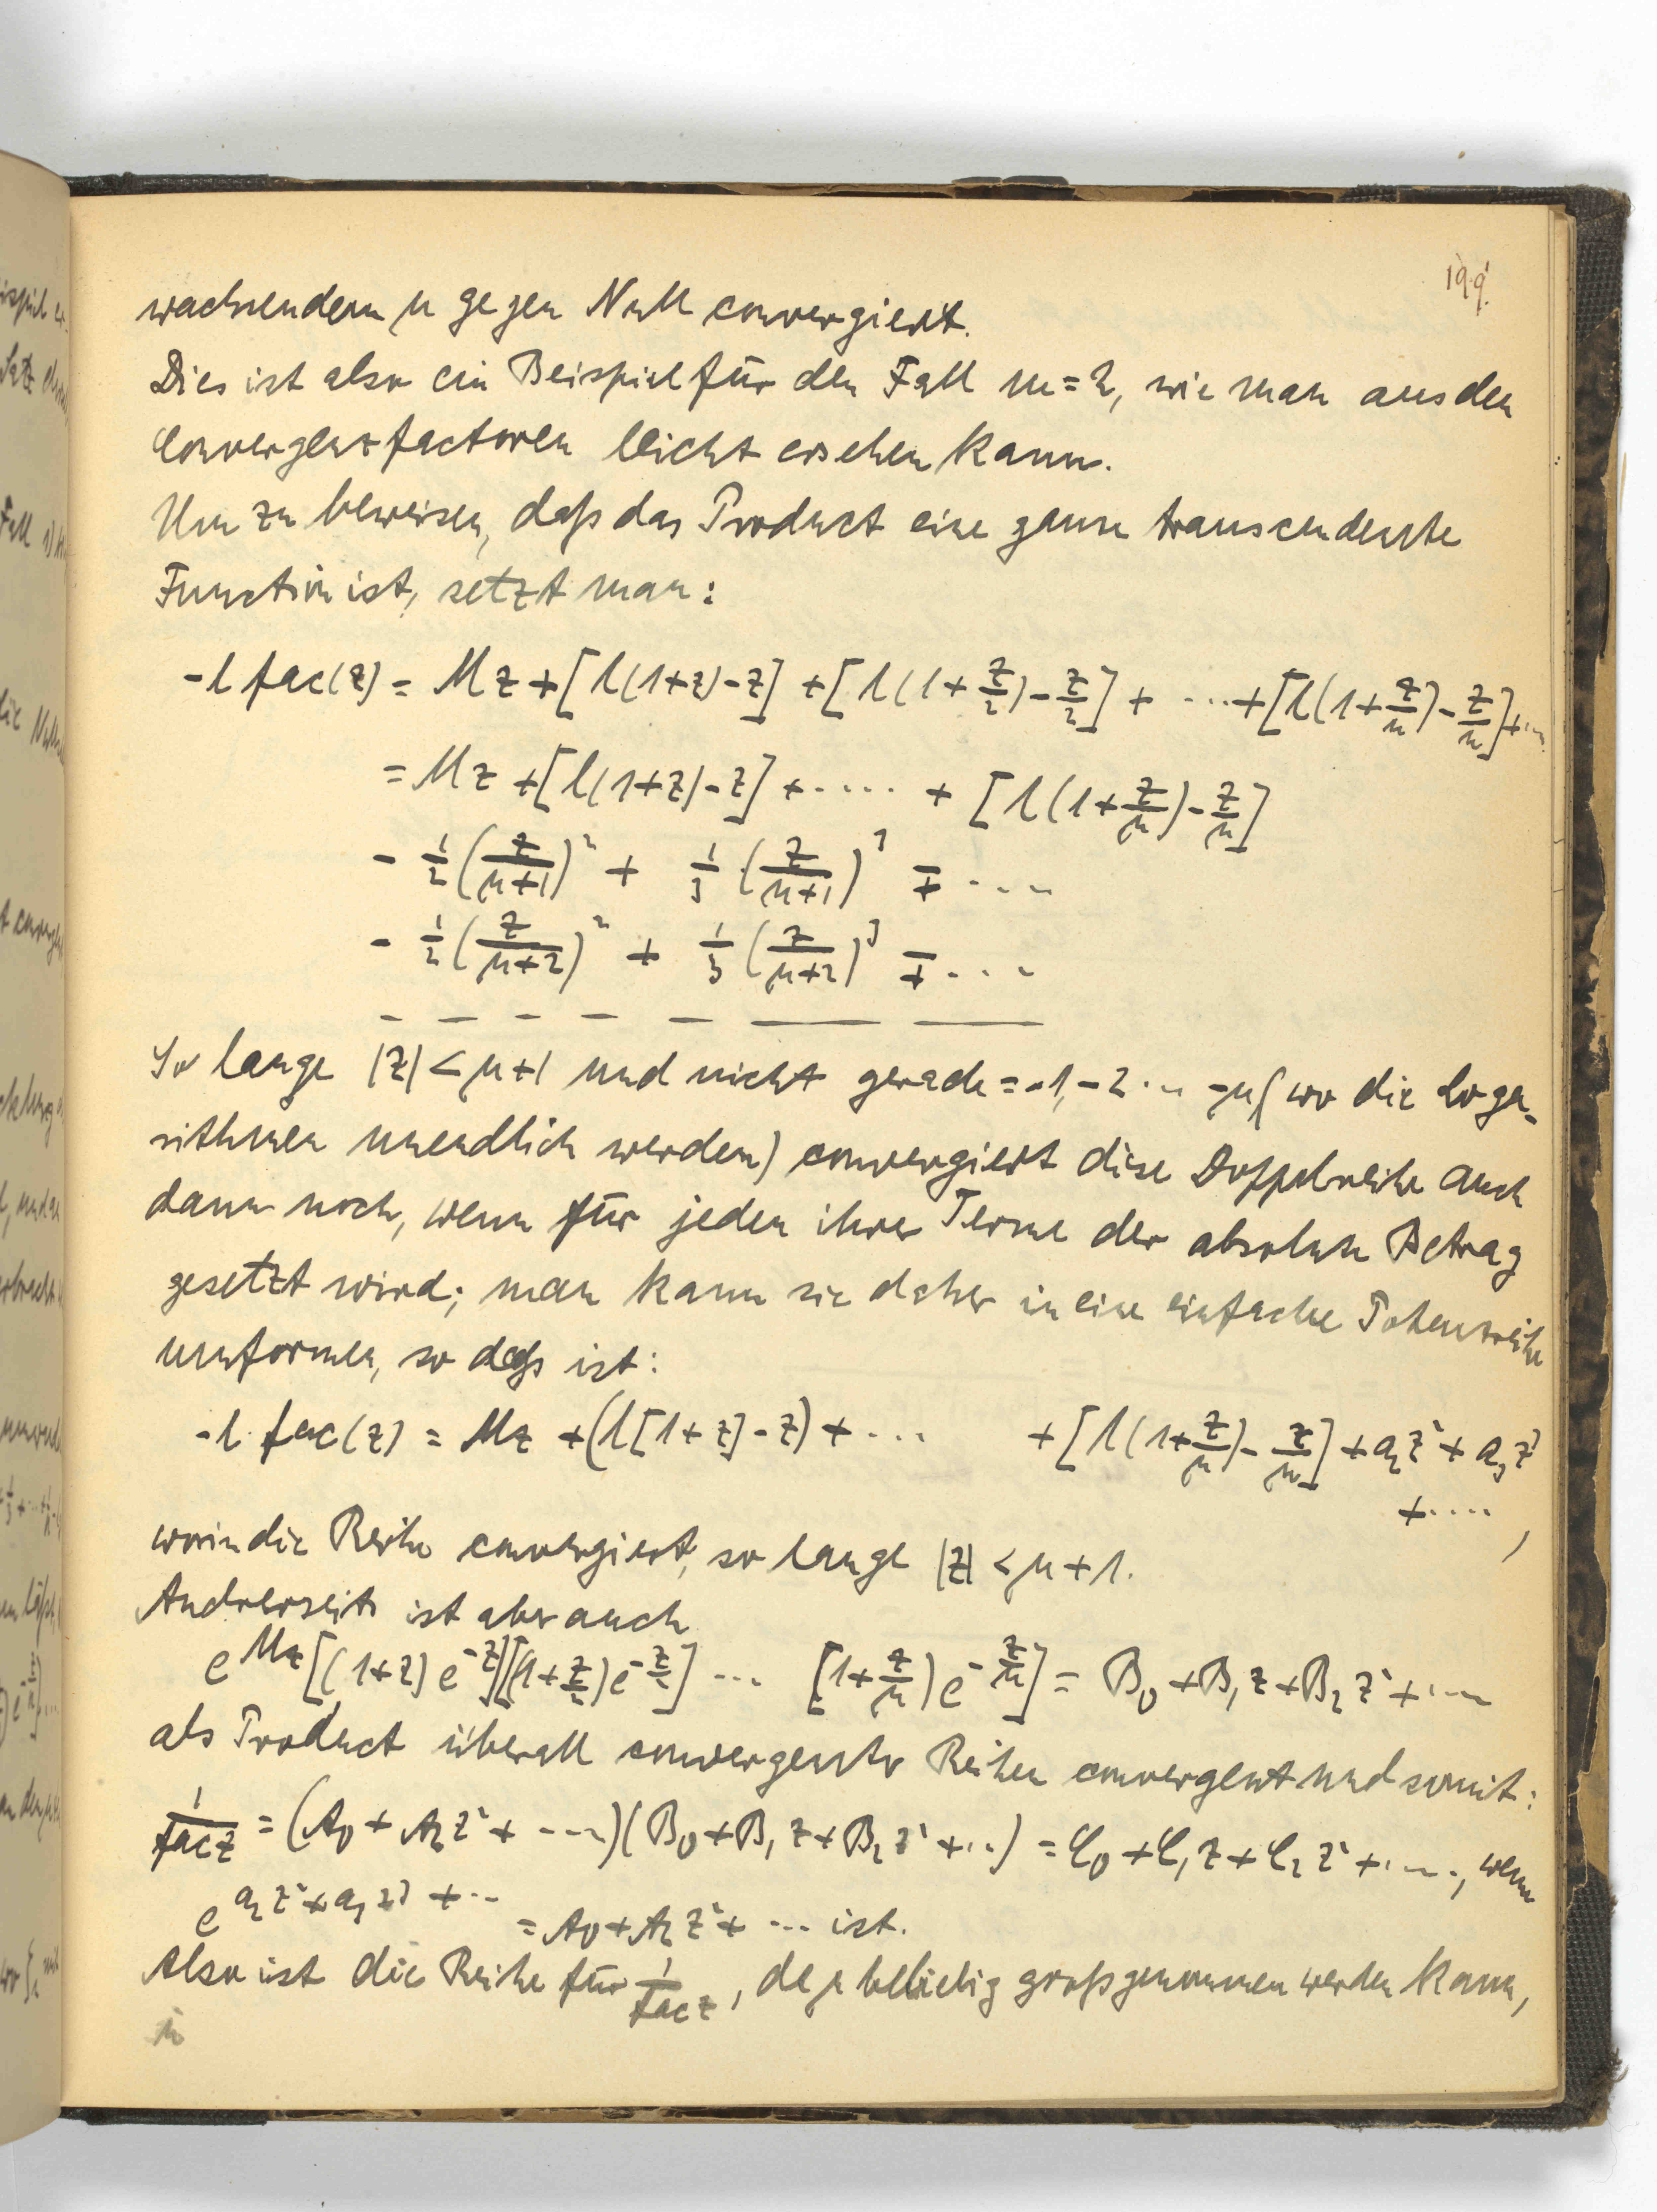 199.
wachsendem μ gegen Null convergiert.
Dies ist also ein Beispiel für den Fall m=2, wie man aus den
Convergenzfactoren leicht ersehen kann.
Um zu beweisen, daß das Product eine ganze transcendente
Function ist, setzt man:
-l fac(z) = Mz + [l(1+z)-z] + [l(1+z/2)-z/2] + ... + [l(1+z/n)-z/n]+...
= Mz + [l(1+z)-z] + ..... + [l(1+z/μ)-z/μ]
- 1/2 (z/(μ+1))² + 1/3 (z/(μ+1))³ ∓ ....
- 1/2 (z/(μ+2))² + 1/3 (z/(μ+2))³ ∓ ....
— — — — — — —
So lange |z| < μ+1 und nicht gerade = -1, -2 ... -μ (wo die Loga-
rithmen unendlich werden) convergiert diese Doppelreihe auch
dann noch, wenn für jeden ihrer Terme der absolute Betrag
gesetzt wird; man kann sie daher in eine einfache Potenzreihe
umformen, so daß ist:
-l fac(z) = Mz + (l[1+z]-z) + ... + [l(1+z/μ)-z/μ] + a₂z² + a₃z³
+....,
worin die Reihe convergiert, so lange |z| < μ+1.
Andrerseits ist aber auch
e^Mz [(1+z)e^-z][(1+z/2)e^-z/2] ... [1+z/μ)e^-z/μ] = B₀+B₁z+B₂z²+....
als Product überall convergenter Reihen convergent und somit:
1/fac z = (A₀+A₂z²+ ....)(B₀+B₁z+B₂z²+...) = C₀+C₁z+C₂z²+...., wenn
e^a₂z²+a₃z³+... = A₀+A₂z²+ ... ist.
Also ist die Reihe für 1/fac z, da μ beliebig groß genommen werden kann,